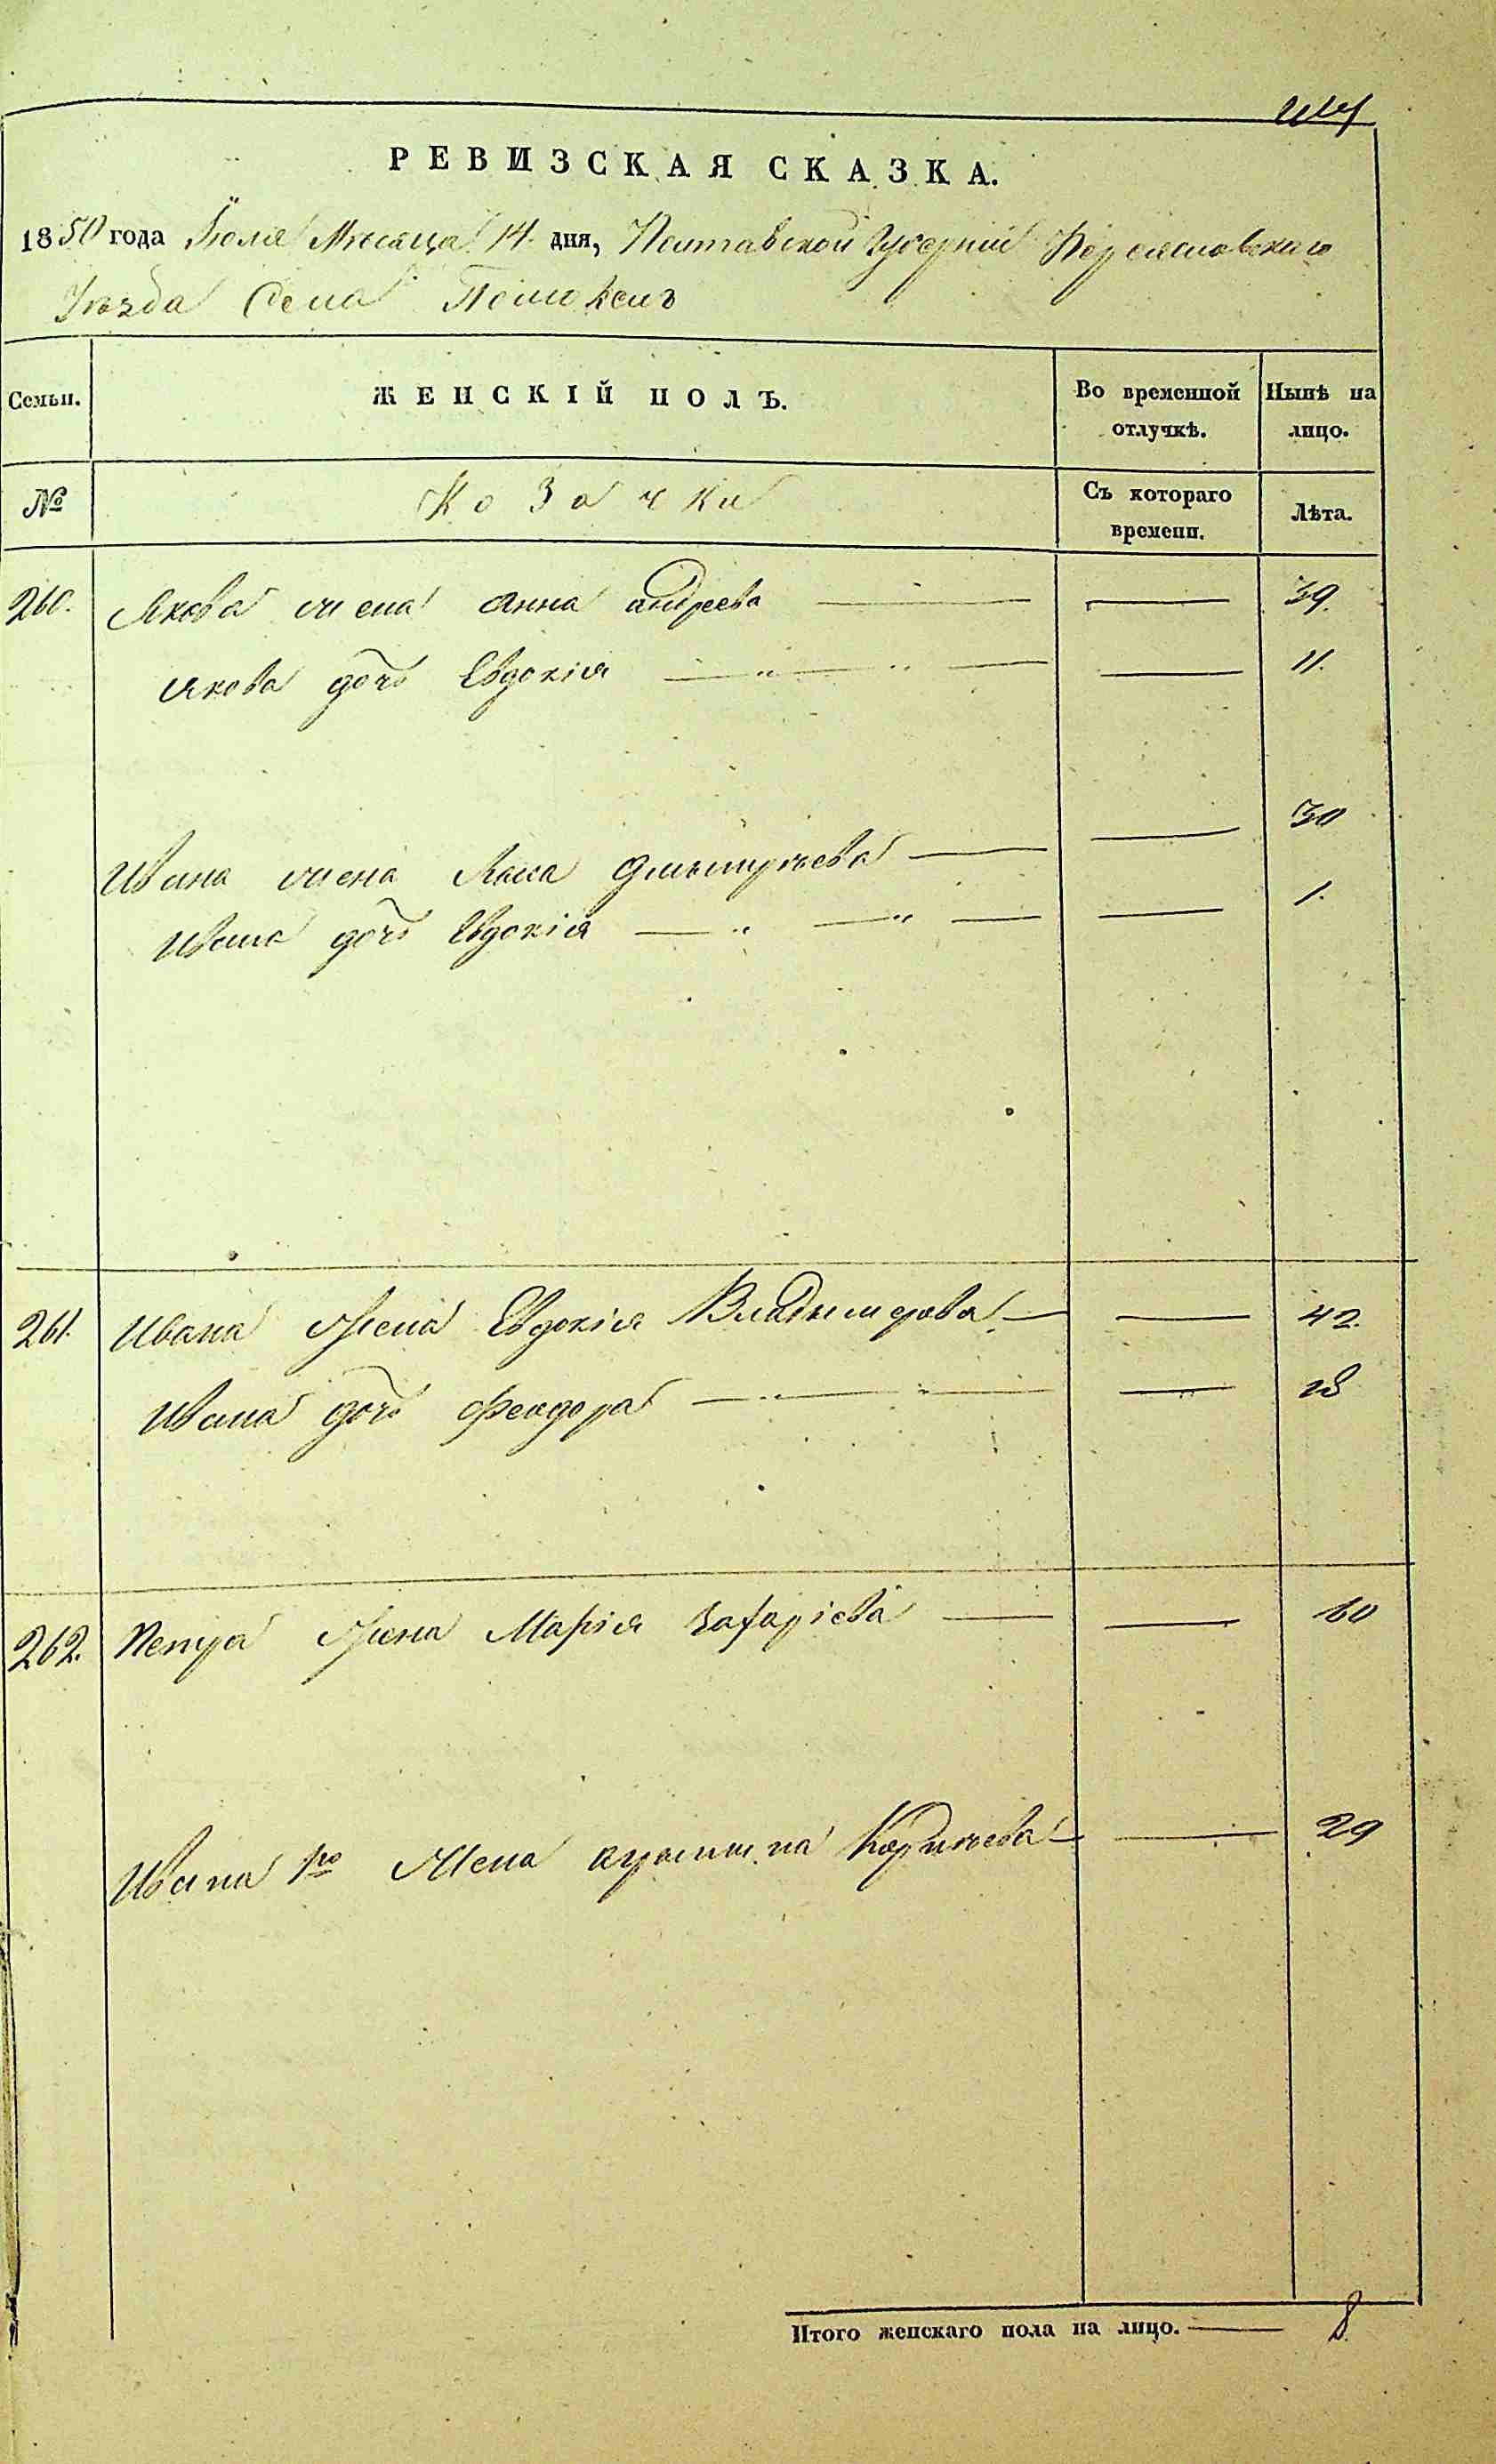 РЕВИЗСКАЯ СКАЗКА.
1850 года Іюля Мѣсяца 14 дня, Полтавской Губерніи Переяславскаго
Уѣзда Села
Семьи. ЖЕНСКІЙ ПОЛЪ. Во временной отлучкѣ. Нынѣ на лицо.
№ Козачки Съ котораго времени. Лѣта.
260. Якова жена Анна Андреева — — 39.
Якова дочь Евдокія — " — " — — 11.
Ивана жена Дмытріева — — 30
Ивана дочь Евдокія — " — " — — 1.
261. Ивана Жена Евдокія Владымерова — — 42.
Ивана дочь Феодора — " — " — —
262. Петра Жена Марія Захаріева — — 60
Ивана 1го Жена Корнѣева — — 29
Итого женскаго пола на лицо. — 8.